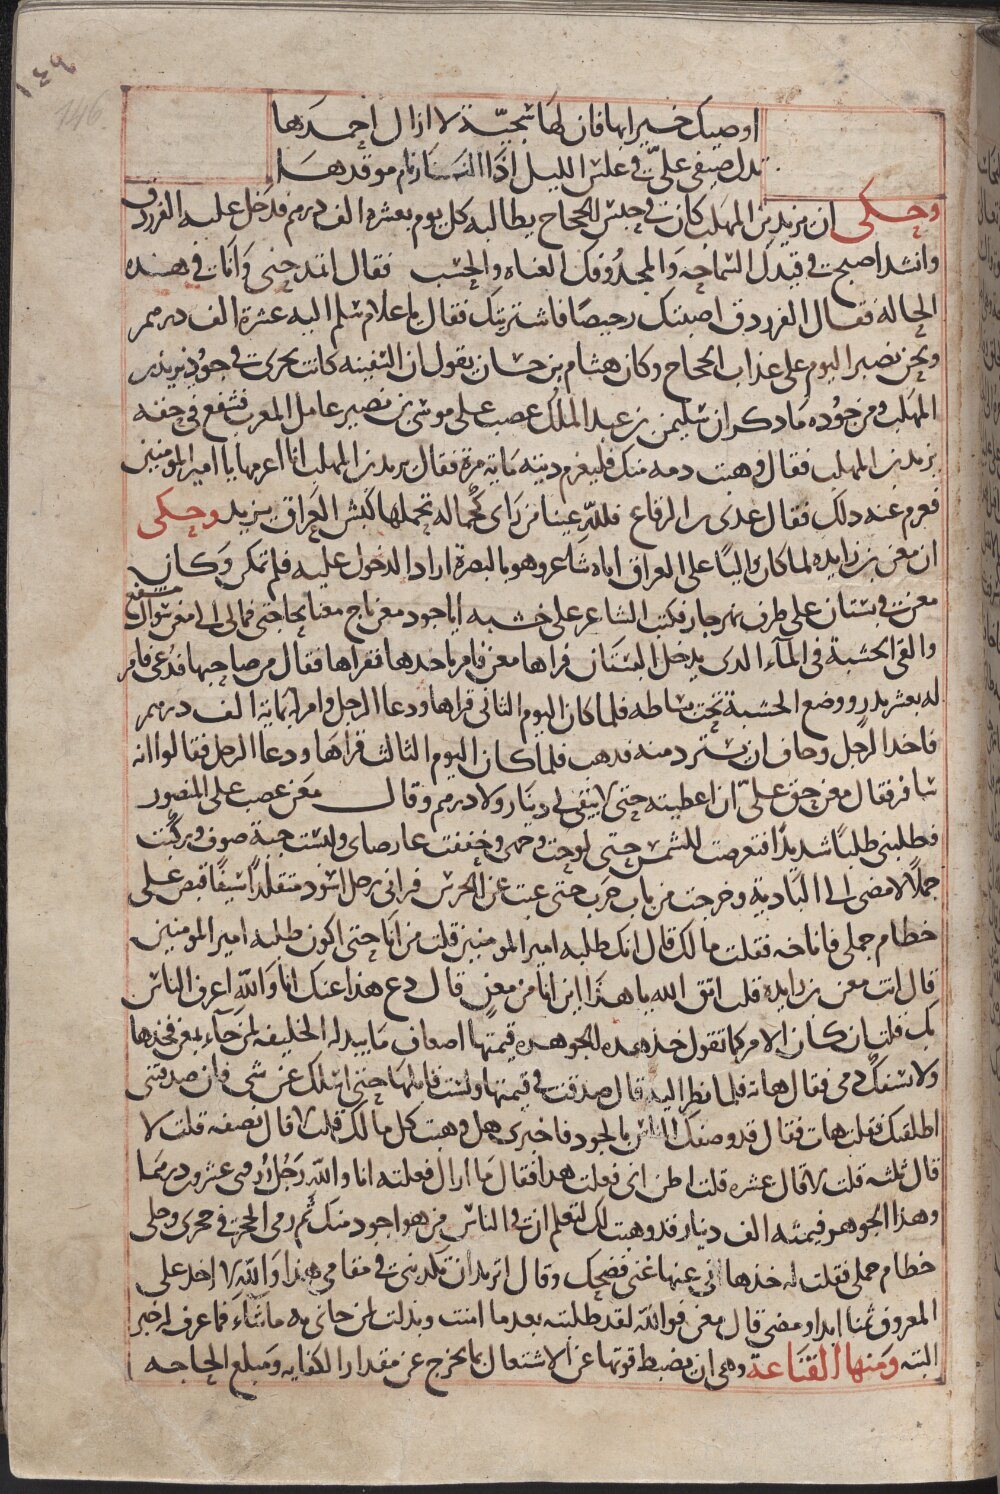 ١٤٩
146
اوصيك خيرا بها فان لها سجيّة لا ازال احمدها
تدل ضيفي عليّ في غلس الليل اذا النار نام موقدها
وحكى ان يزيد بن المهلب كان في حبس الحجاج يطالبه كل يوم بعشرة الف درهم فدخل عليه الفرزدق
وانشد اصبح في قيدك السماحة والمجد وفك العناه والحسب فقال اتمدحني وانا في هذه
الحاله فقال الفرزدق اصبتك رخيصا فاشتريتك فقال يا غلام سلم اليه عشرة الف درهم
ونحن نصبر اليوم على عذاب الحجاج وكان هشام بن حسان يقول ان السفينه كانت تجري في جود يزيد بن
المهلب ومن جوده ما دكر ان سليمن بن عبد الملك غضب على موسى بن نصير عامل المغرب فشفع في حقه
يزيد بن المهلب فقال وهبت دمه منك فليغرم ديته ماية مرة فقال يزيد بن المهلب انا اغرمها يا امير المومنين
فغرم عنه دلك فقال عدى بن الرقاع فلله عينا من راى كحماله تحملها كبش العراق يزيد وحكى
ان معن بن زايده لما كان واليا على العراق اتاه شاعر وهو بالبصرة اراد الدخول عليه فلم تمكن وكان
معن في بستان على طرف نهر جار فكتب الشاعر على خشبه ايا جود معن ناج معنا بحاجتي فمالي الى معن سواك شفيع
والقى الخشبة في الماء الدى يدخل البستان فراها معن فامر باخدها فقراها فقال من صاحبها فدعى فامر
له بعشر بدر ووضع الخشبة تحت بساطه فلما كان اليوم الثاني قراها ودعا الرجل وامر له بماية الف درهم
فاخد الرجل وخاف ان يسترد منه فدهب فلما كان اليوم الثالث قراها ودعا الرجل فقالوا انه
سافر فقال معن حق عليّ ان اعطيته حتى لا يبقى لي دينار ولا درهم وقال معن غضب على المنصور
فطلبني طلبا شديدا فتعرضت للشمس حتى لوحت وجهي وخففت عارضاي ولبست جبة صوف وركبت
جملا لامضى الى البادية وخرجت من باب حرب حتى غبت عن الحرس فراني رجل اسود متقلدا سيفا قبض على
خطام جملي فاناخه فقلت مالك قال انك طلبه امير المومنين قلت من انا حتى اكون طلبه امير المومنين
قال انت معن بن زايده قلت اتق الله يا هذا اين انا من معن قال دع هذا عنك انا والله اعرف الناس
بك فقلت ان كان الامر كما تقول خذ هده الجوهره قيمتها اضعاف ما يبدله الخليفه لمن جاء بمعن فخذها
ولا تسفك دمي فقال هاته فلما نظر اليه قال صدقت في قيمتها ولست قابلها حتى اسلك عن شى فان صدقتني
اطلقتك فقلت هات فقال قد وصفك الناس بالجود فاخبرني هل وهبت كل مالك قلت لا قال نصفه قلت لا
قال ثلثه قلت لا قال عشره قلت اظن انى فعلت هدا فقال ما ارال فعلته انا والله رجل رزقي عشرون درهما
وهذا الجوهر قيمته الف دينار قد وهبت لك لتعلم ان في الناس من هو اجود منك ثم رمى الحجر في حجري وخلى
خطام جملي فقلت له خذها اني عنها غني فضحك وقال اتريد ان تكذبني في مقامي هذا والله لا اخد على
المعروف ثمنا ابدا ومضى قال معن فوالله لقد طلبته بعد ما امنت وبذلت لمن جاني به ما شاء فما عرف له خبر
البته ومنها القناعة وهي ان يضبط قوتها عن الاشتغال بما يخرج عن مقدار الكفايه ومبلغ الحاجه